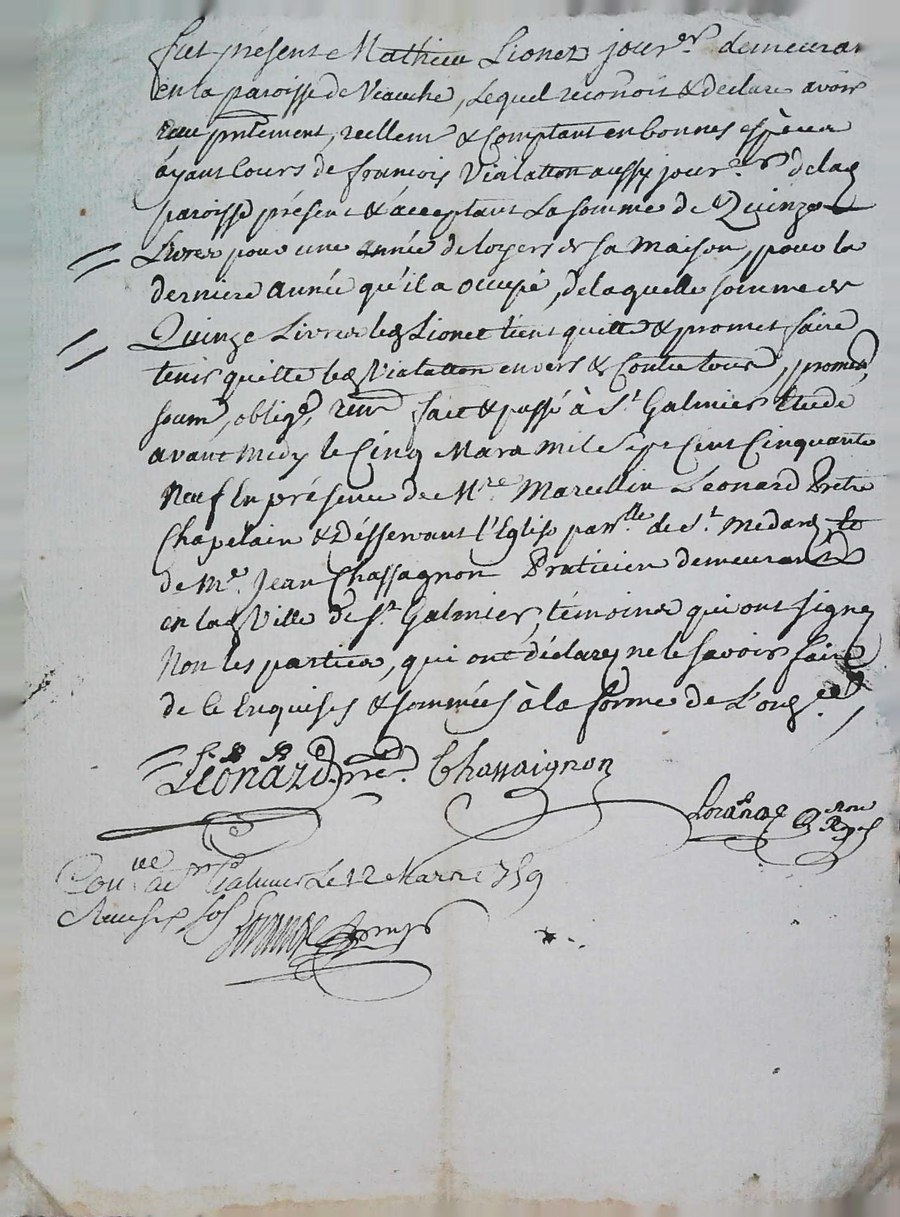 fut présent Mathieu Lionet jour.er demeurant
en la paroisse de Veauche, Lequel reconoit & declare avoir
receu pntement, reellem.t & Comptant en bonnes espèces
ayant Cours de francois Vialatton aussy jour.er de lad
paroisse présent & acceptant La somme de Quinze
Livres pour une année de loyers de sa maison, pour la
derniere année qu'il a occupé, de laquelle somme de
Quinze Livres led Lionet tient quitte & promet faire
tenir quitte led Vialatton envers & Contre tous, promett
soum, oblige, ren fait & passé à St. Galmier Etude
avant midy le Cinq Mars mil Sept Cent Cinquante
Neuf En présence de M.re Marcellin Léonard Prêtre
Chapelain & Déssservant l'Eglise par.lle de St. Medard, &
de M.e Jean Chassagnon Praticien demeurant
en lad Ville de St. Galmier, témoins qui ont signé
Non les parties, qui ont déclaré ne le savoir faire
de ce Enquises & sommées à la forme de L'ord.ce
Léonard Ptre. Chassaignon
Not Royal
Con.lé a St Galmier Le 12 Mars 1759
Reçu six sols